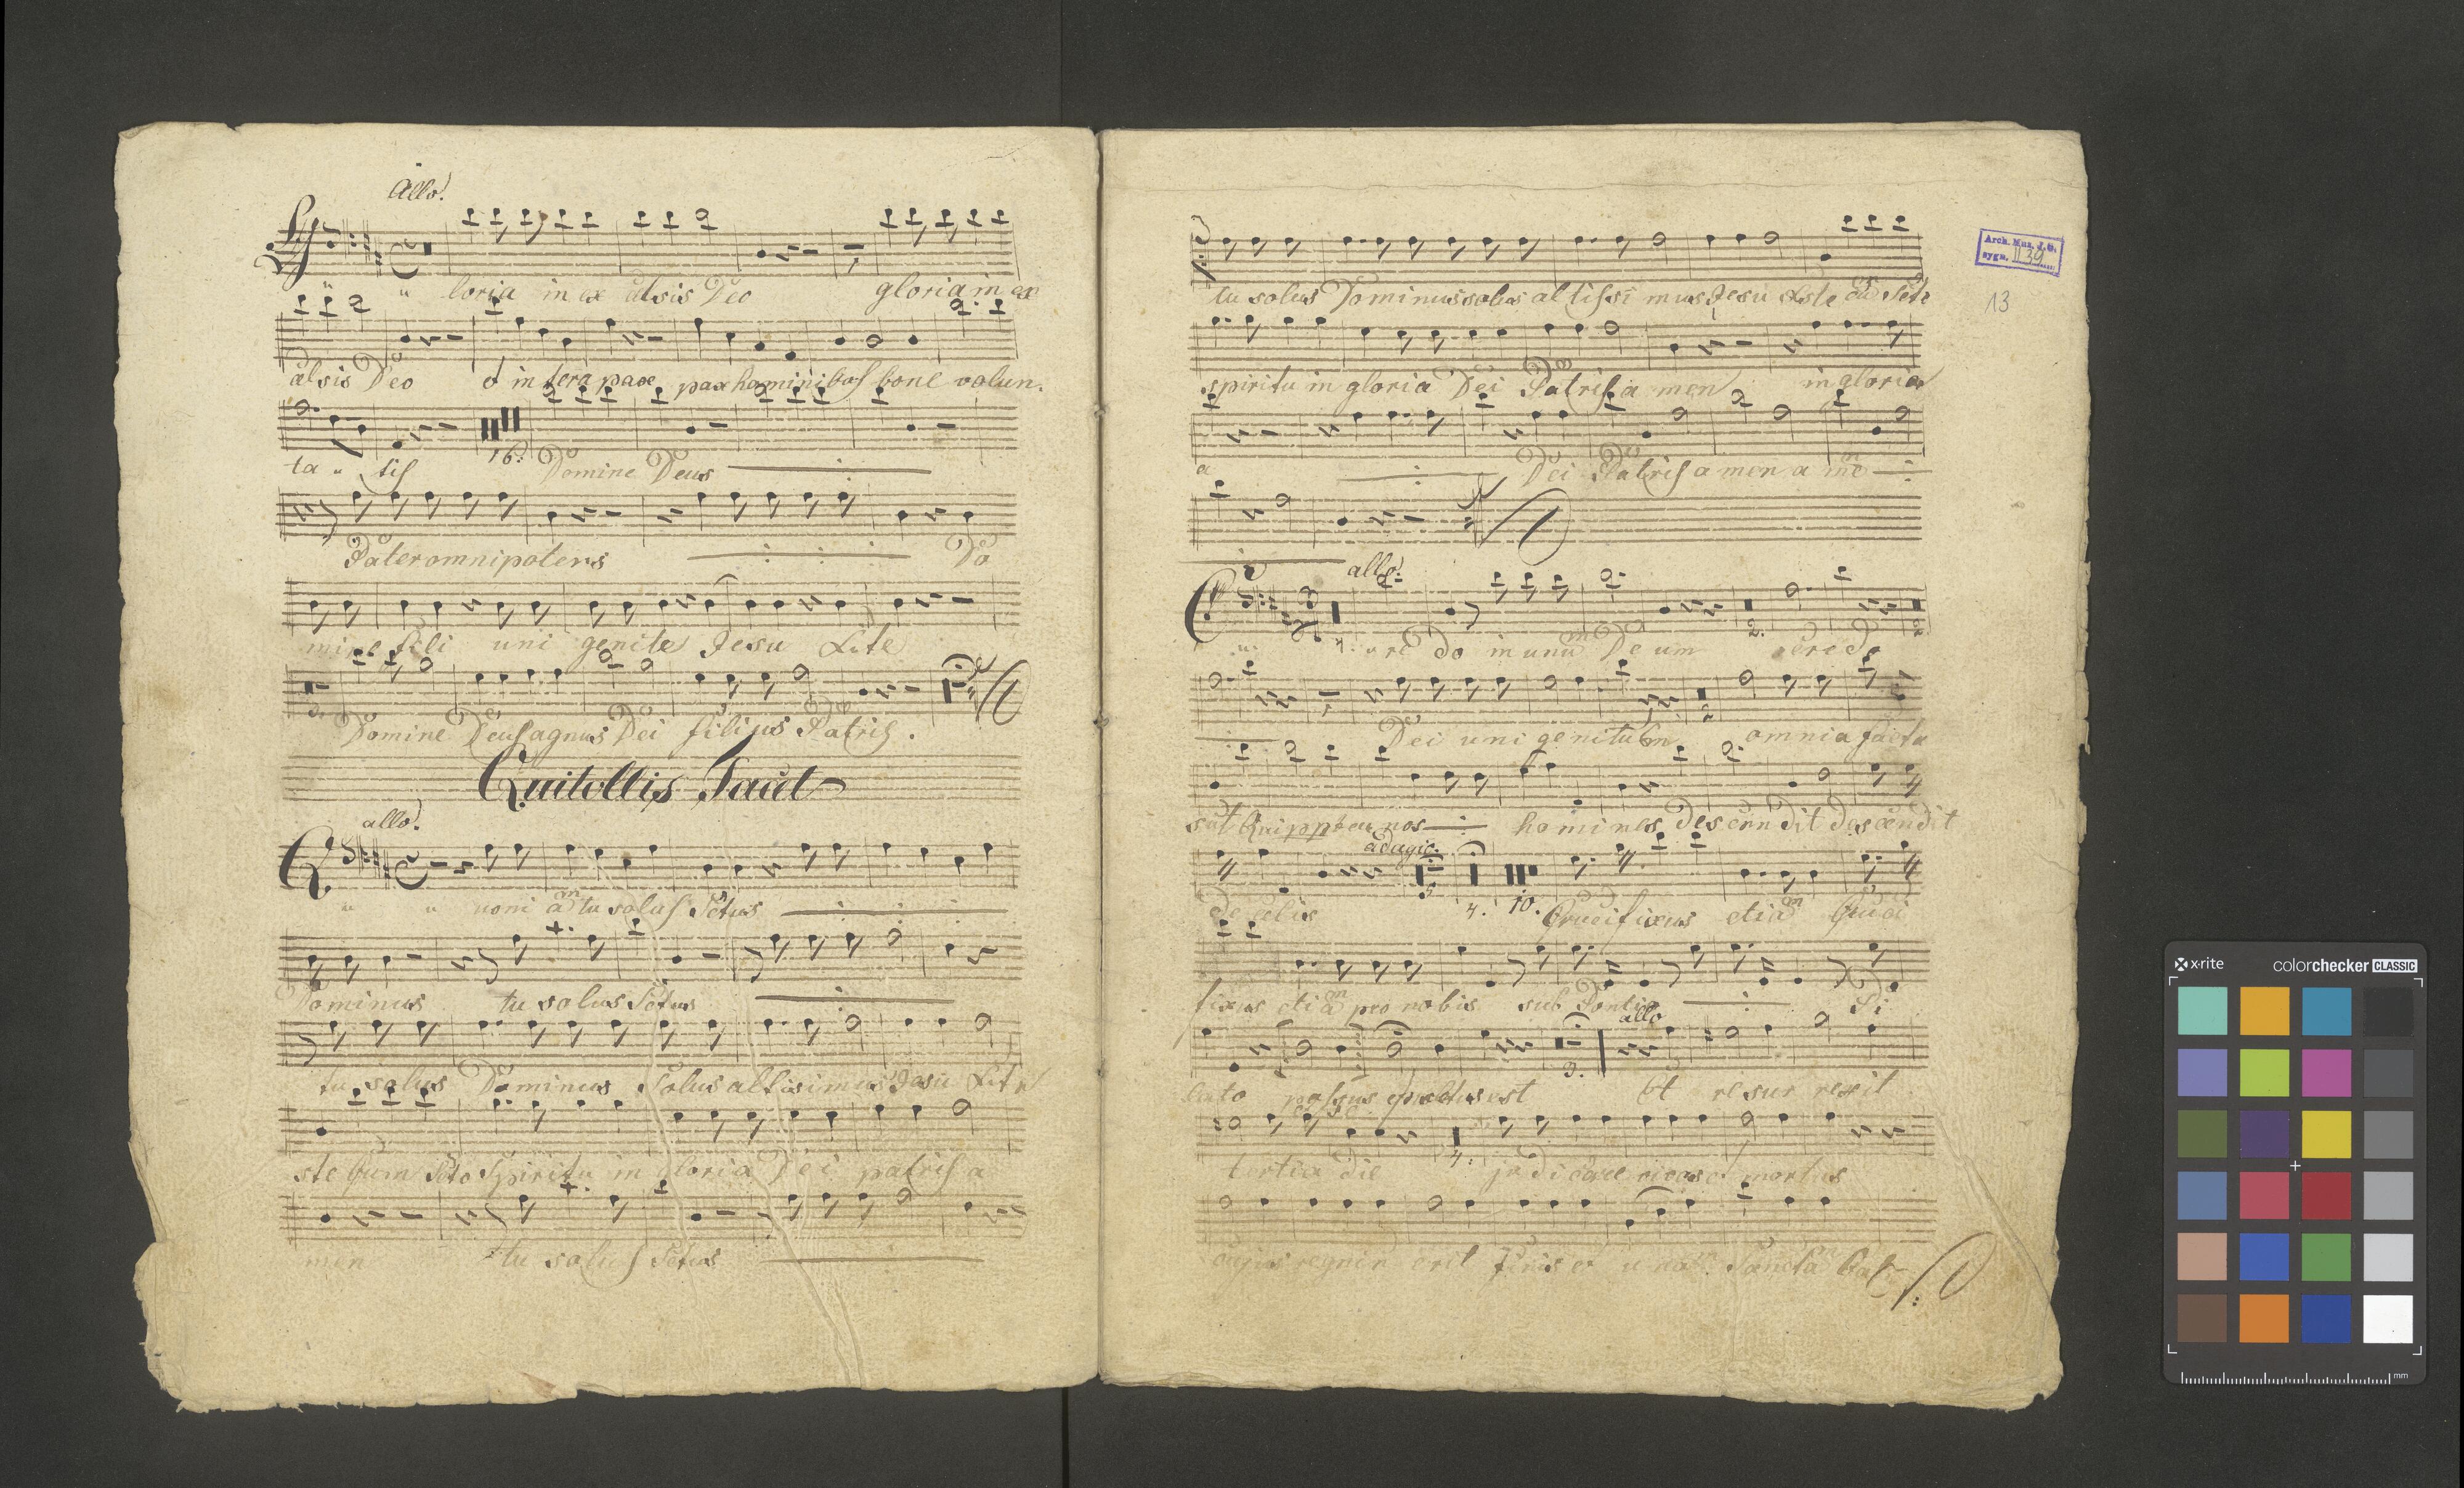 Allo.
Gloria in ex celsis Deo gloria in ex
celsis Deo et in tera pace pax hominibus bone volun.
ta tis 16. Domine Deus
Pater omnipotens Do
mine fili uni genite Jesu Xste
Domine Deus agnus Dei filius Patris.
Quitollis Tacet
allo.
Quoniam tu solus Sctus
Dominus tu solus Sctus
tu solus Dominus Solus altisimus Jesu Xste
ste Cum Scto Spiritu in gloria Dei patris a
men tu solus Sctus
tu solus Dominus solus altissimus Jesu Xste cum Scto
spiritu in gloria Dei Patris amen in gloria
a Dei Patris amen a men
allo.
Credo in unum Deum 2. credo 2.
Dei unigenitum omnia facta
sut Qui propter nos homines descendit descendit
adagio.
de celis 4. 10. Crucifixus etiam Cruci
fixus etiam pro nobis sub Pontio Pi
allo
lato passus sepultus est Et resurrexit
tertia die 4. judicare vivos et mortus
cujus regni n erit finis et unam Sanctam Cat
Arch. Muz. J.G.
sygn. II 39
13
x-rite colorchecker CLASSIC
mm